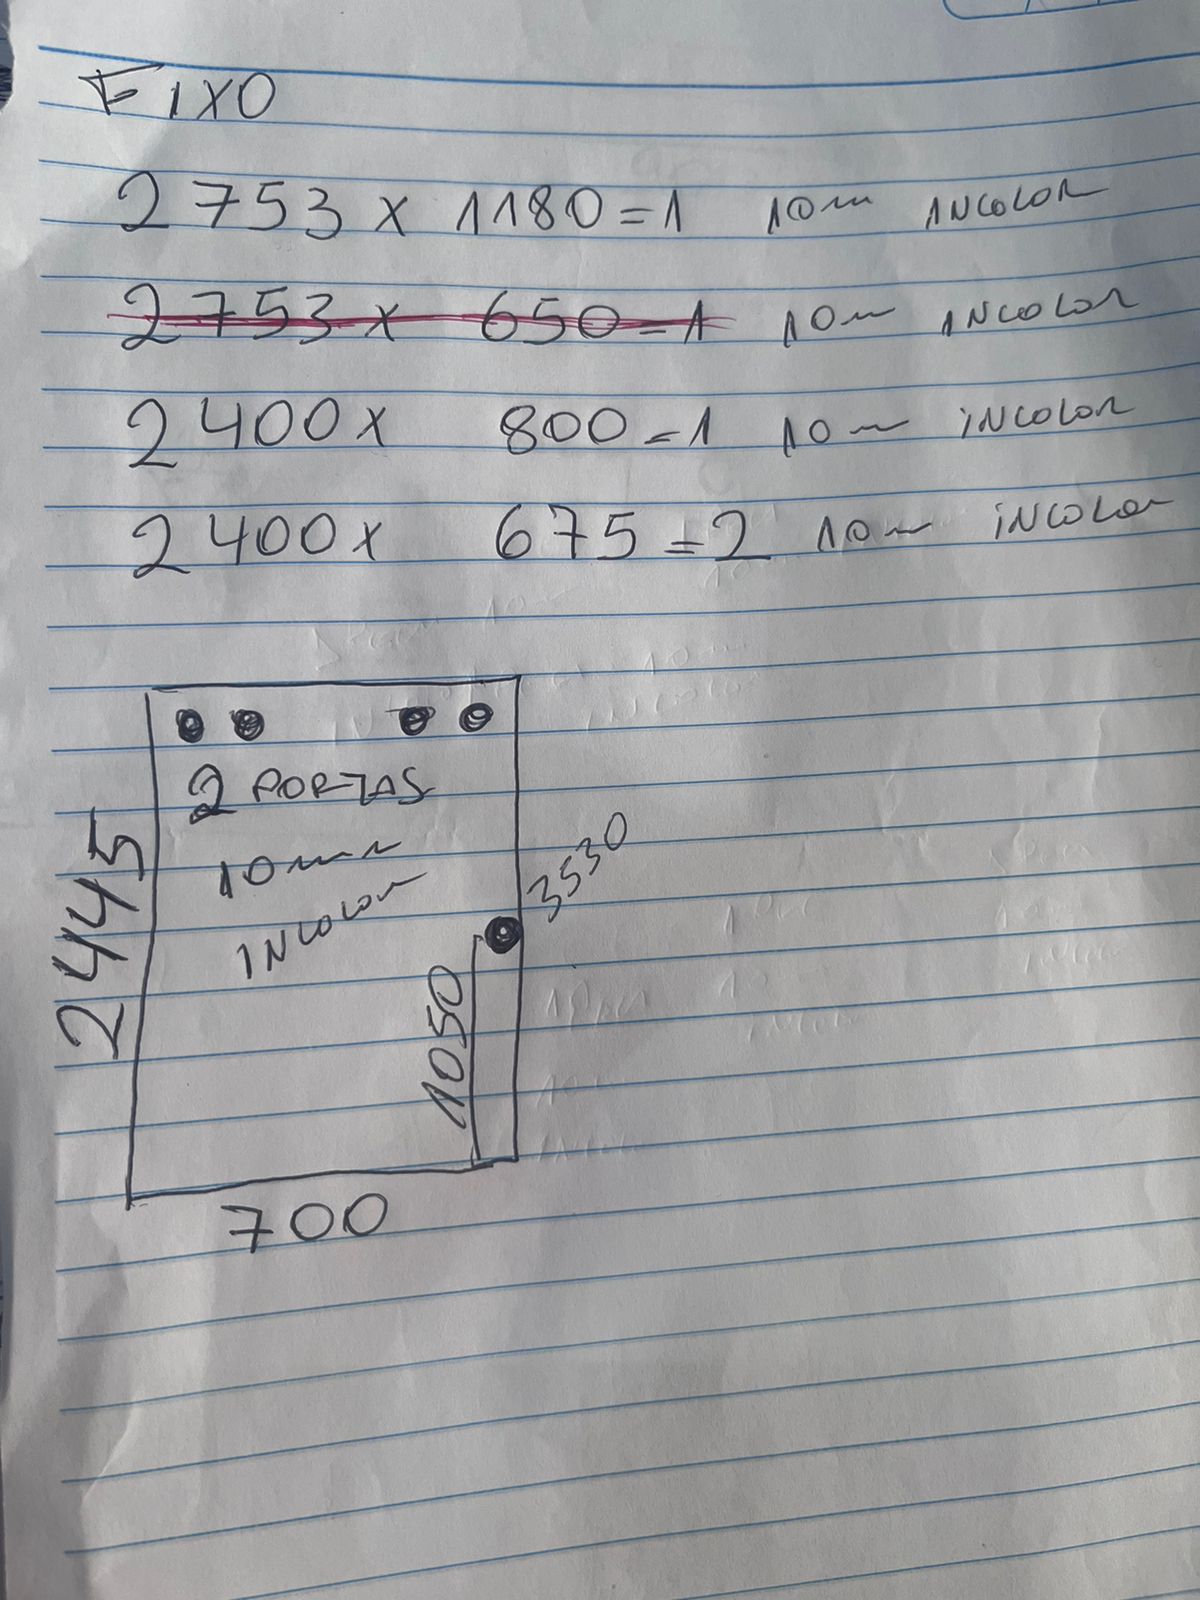 FIXO
2753 x 1180 = 1 10m INCOLOR
2753 x 650 = 1 10m INCOLOR
2400 x 800 = 1 10m INCOLOR
2400 x 675 = 2 10m INCOLOR
2 PORTAS
10mm
INCOLOR
2445
3530
1050
700